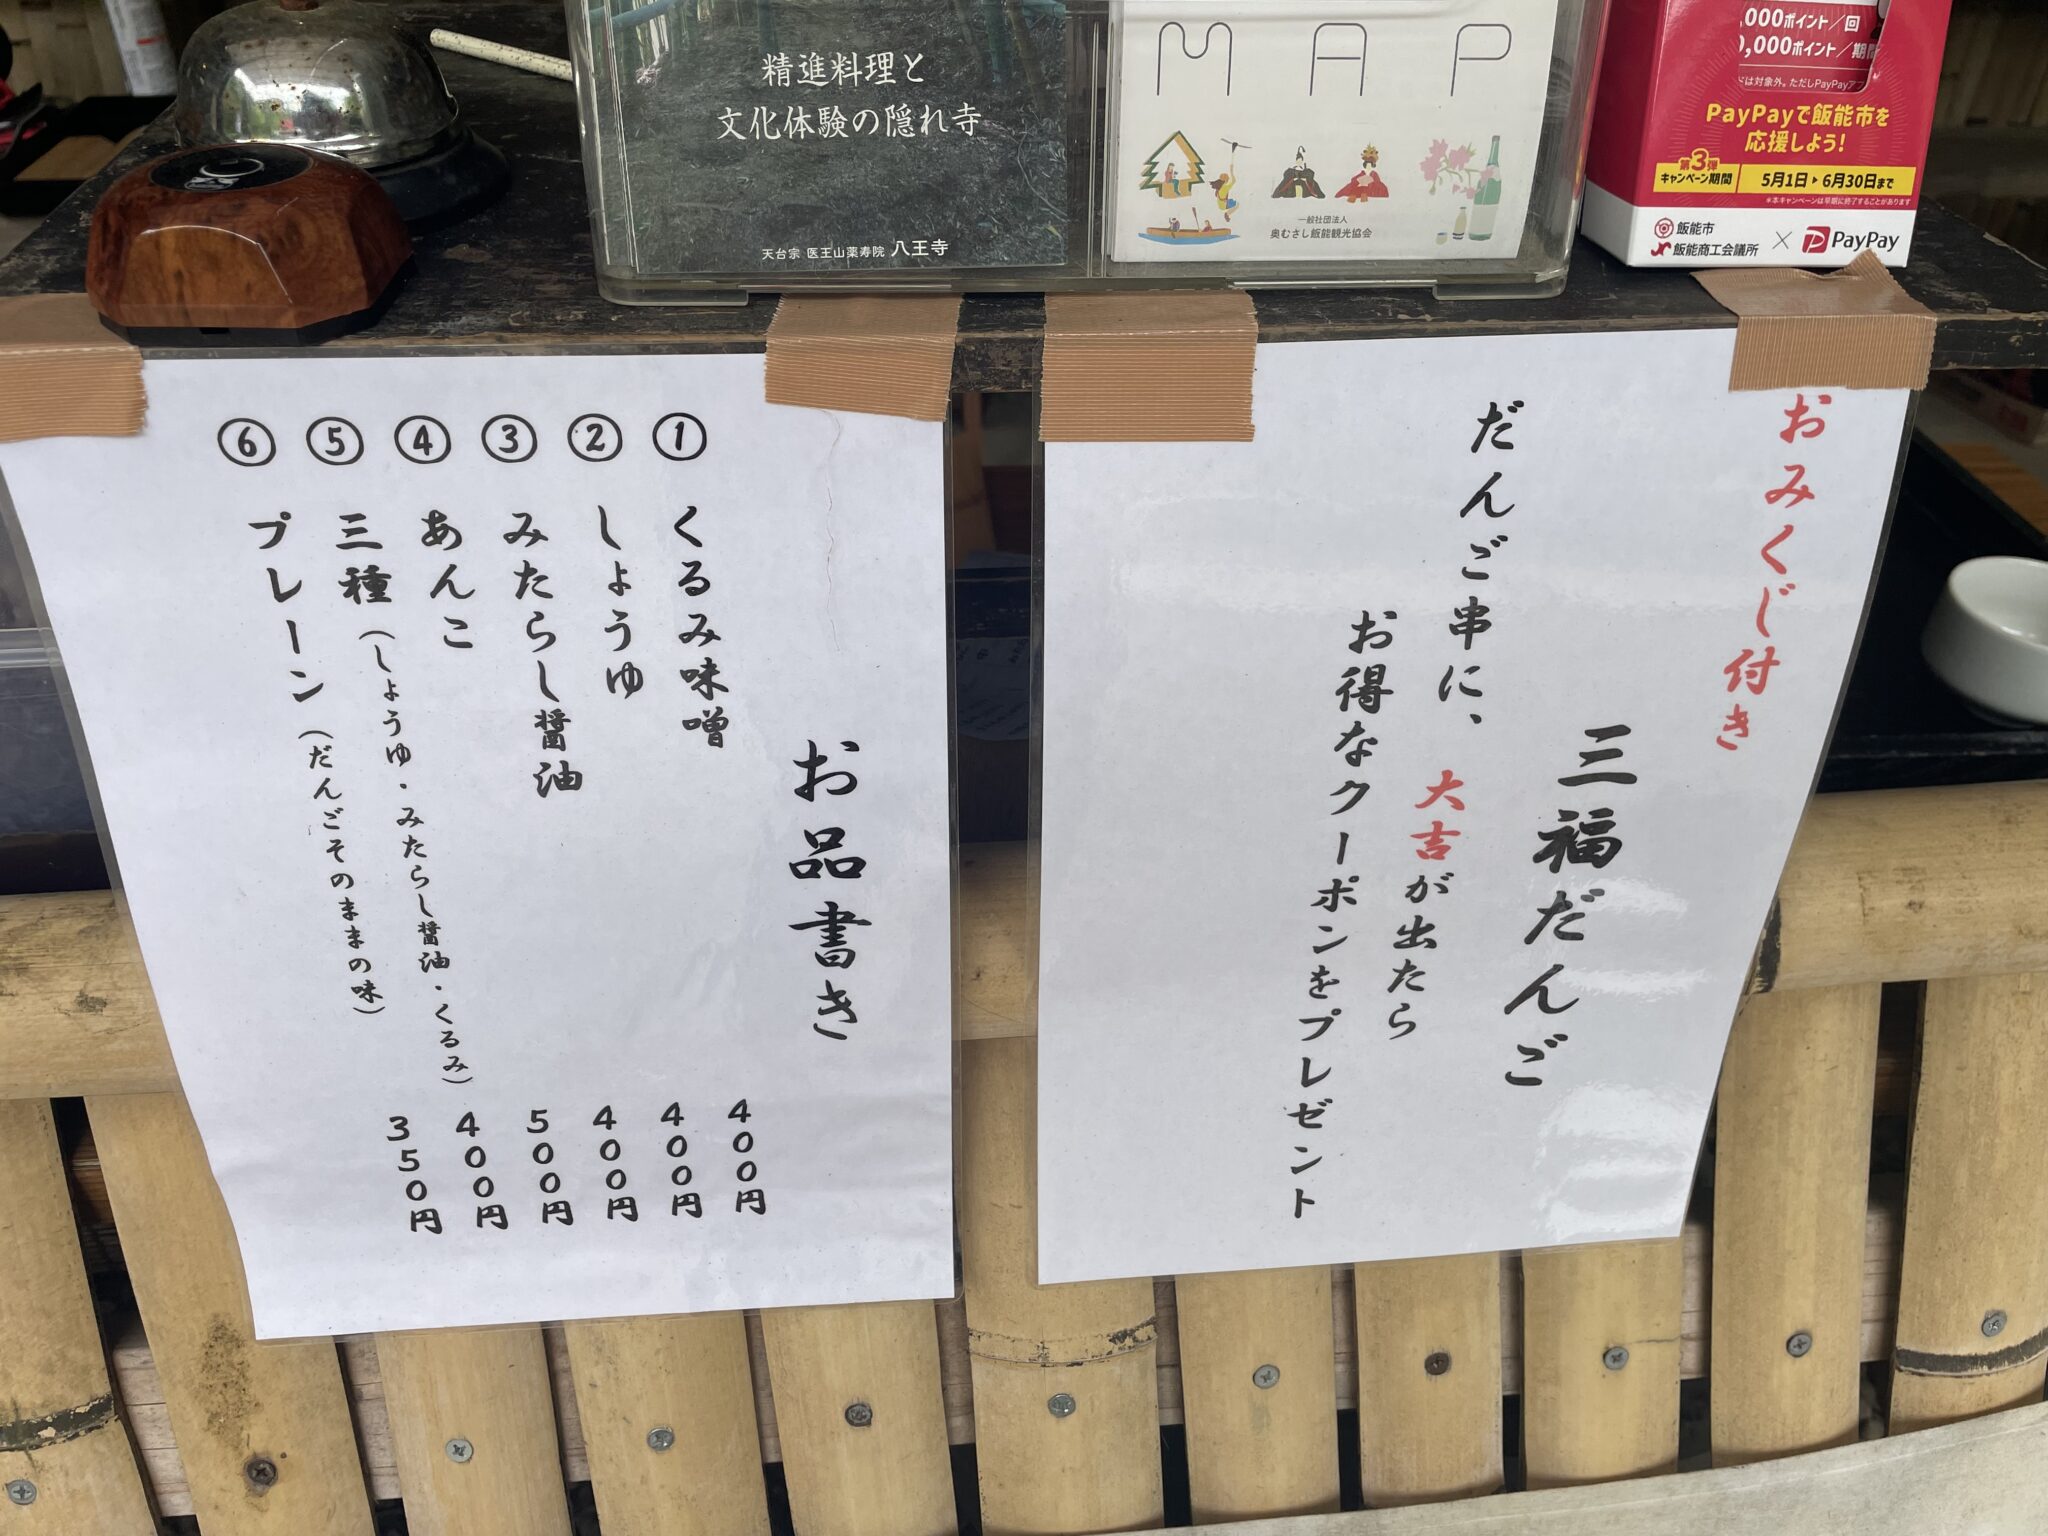 精進料理と
文化体験の隠れ寺
天台宗 医王山薬寿院 八王寺
MAP
一般社団法人
奥むさし飯能観光協会
,000ポイント/回
0,000ポイント/期間
PayPayで飯能市を
応援しよう!
第3弾
キャンペーン期間
5月1日▶6月30日まで
※本キャンペーンは早期に終了することがあります
飯能市
飯能商工会議所
×
PayPay
おみくじ付き
三福だんご
だんご串に、大吉が出たら
お得なクーポンをプレゼント
お品書き
① くるみ味噌 400円
② しょうゆ 400円
③ みたらし醤油 400円
④ あんこ 500円
⑤ 三種(しょうゆ・みたらし醤油・くるみ) 400円
⑥ プレーン(だんごそのままの味) 350円